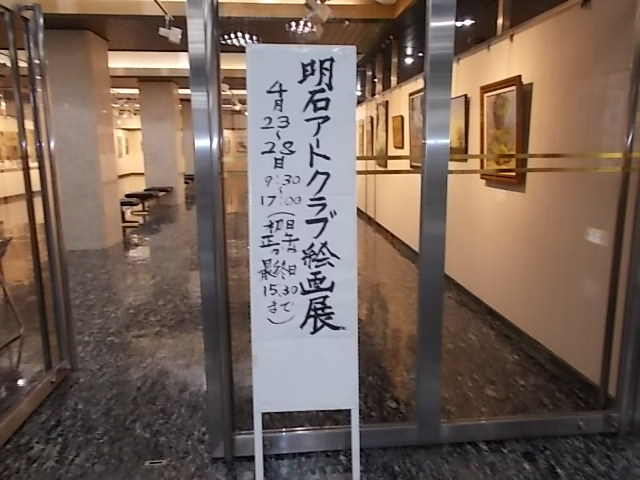 明石アートクラブ絵画展
4月23~28日
9:30~17:00
(初日正午
最終日15:30まで)